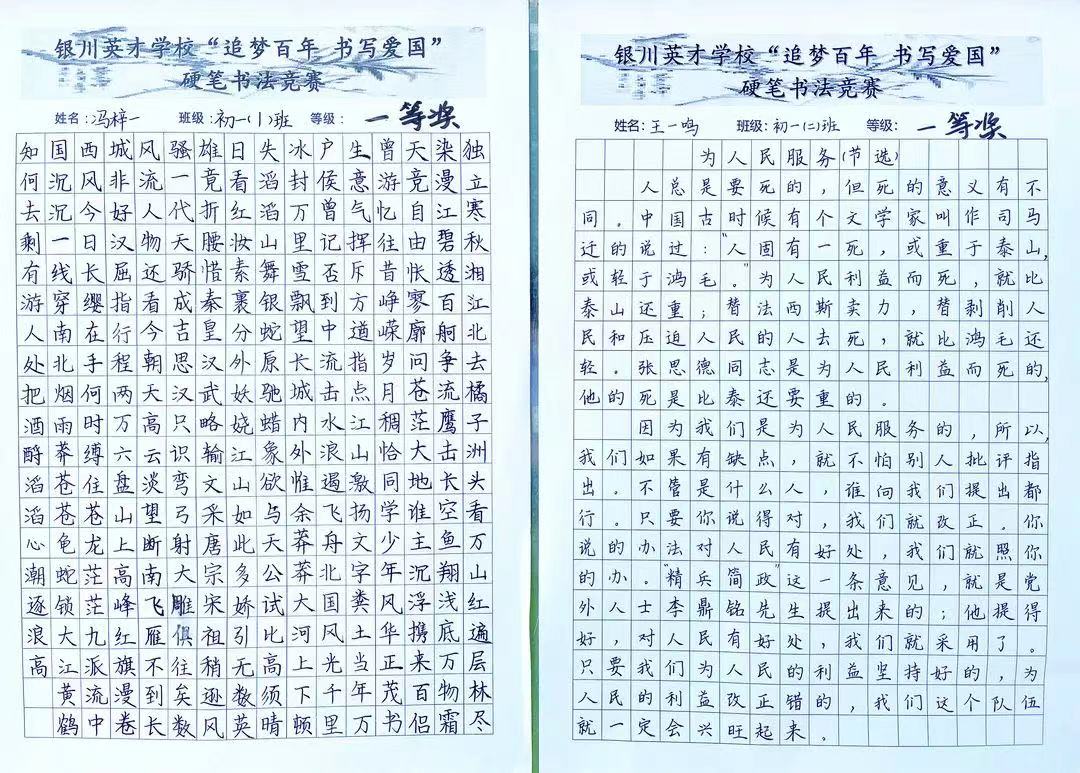 银川英才学校“追梦百年 书写爱国”
硬笔书法竞赛
姓名：冯梓一 班级：初一(1)班 等级：一等奖
独立寒秋湘江北去橘子洲头看万山红遍层林尽
染漫江碧透百舸争流鹰击长空鱼翔浅底万物霜
天竞自由怅寥廓问苍茫大地谁主沉浮携来百侣
曾游忆往昔峥嵘岁月稠恰同学少年风华正茂书
生意气挥斥方遒指点江山激扬文字粪土当年万
户侯曾记否到中流击水浪遏飞舟北国风光千里
冰封万里雪飘望长城内外惟余莽莽大河上下顿
失滔滔山舞银蛇原驰蜡象欲与天公试比高须晴
日看红妆素裹分外妖娆江山如此多娇引无数英
雄竟折腰惜秦皇汉武略输文采唐宗宋祖稍逊风
骚一代天骄成吉思汉只识弯弓射大雕俱往矣数
风流人物还看今朝天高云淡望断南飞雁不到长
城非好汉屈指行程两万六盘山上高峰红旗漫卷
西风今日长缨在手何时缚住苍龙茫茫九派流中
国沉沉一线穿南北烟雨莽苍苍龟蛇锁大江黄鹤
知何去剩有游人处把酒酹滔滔心潮逐浪高
银川英才学校“追梦百年 书写爱国”
硬笔书法竞赛
姓名：王一鸣 班级：初一(二)班 等级：一等奖
为人民服务(节选)
人总是要死的，但死的意义有不
同。中国古时候有个文学家叫作司马
迁的说过：“人固有一死，或重于泰山，
或轻于鸿毛。”为人民利益而死，就比
泰山还重；替法西斯卖力，替剥削人
民和压迫人民的人去死，就比鸿毛还
轻。张思德同志是为人民利益而死的，
他的死是比泰还要重的。
因为我们是为人民服务的，所以，
我们如果有缺点，就不怕别人批评指
出。不管是什么人，谁向我们提出都
行。只要你说得对，我们就改正。你
说的办法对人民有好处，我们就照你
的办。“精兵简政”这一条意见，就是党
外人士李鼎铭先生提出来的；他提得
好，对人民有好处，我们就采用了。
只要我们为人民的利益坚持好的，为
人民的利益改正错的，我们这个队伍
就一定会兴旺起来。